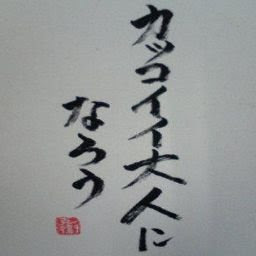 カッコイイ大人に
なろう